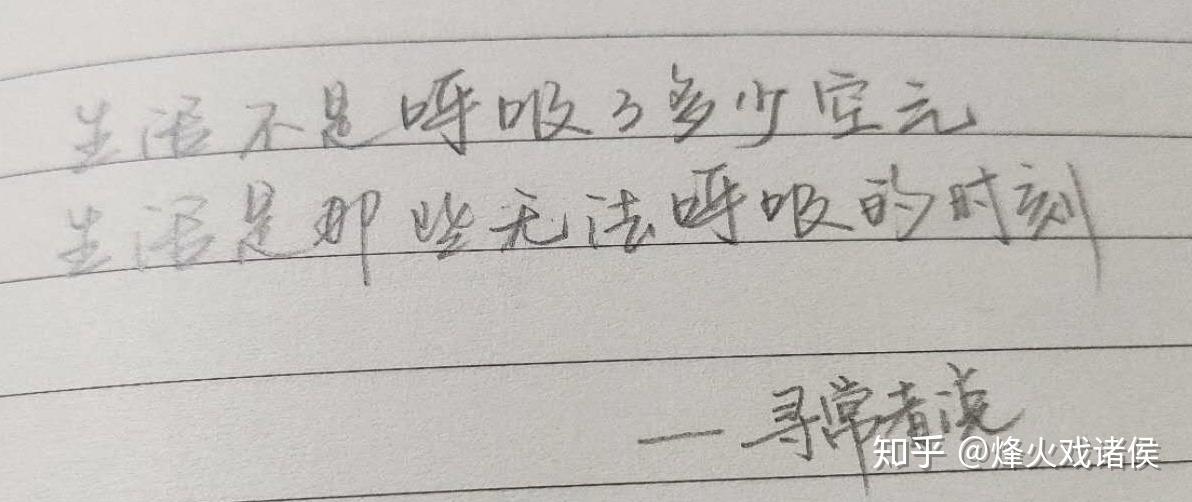 生活不是呼吸了多少空气
生活是那些无法呼吸的时刻
—寻常者说
知乎 @烽火戏诸侯